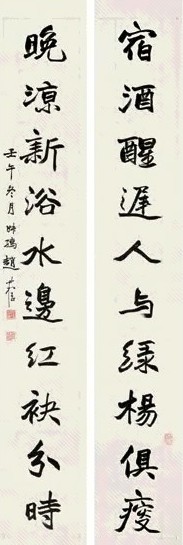 宿酒醒遲人与綠楊俱瘦
晚涼新浴水邊紅袂分時
壬午冬月